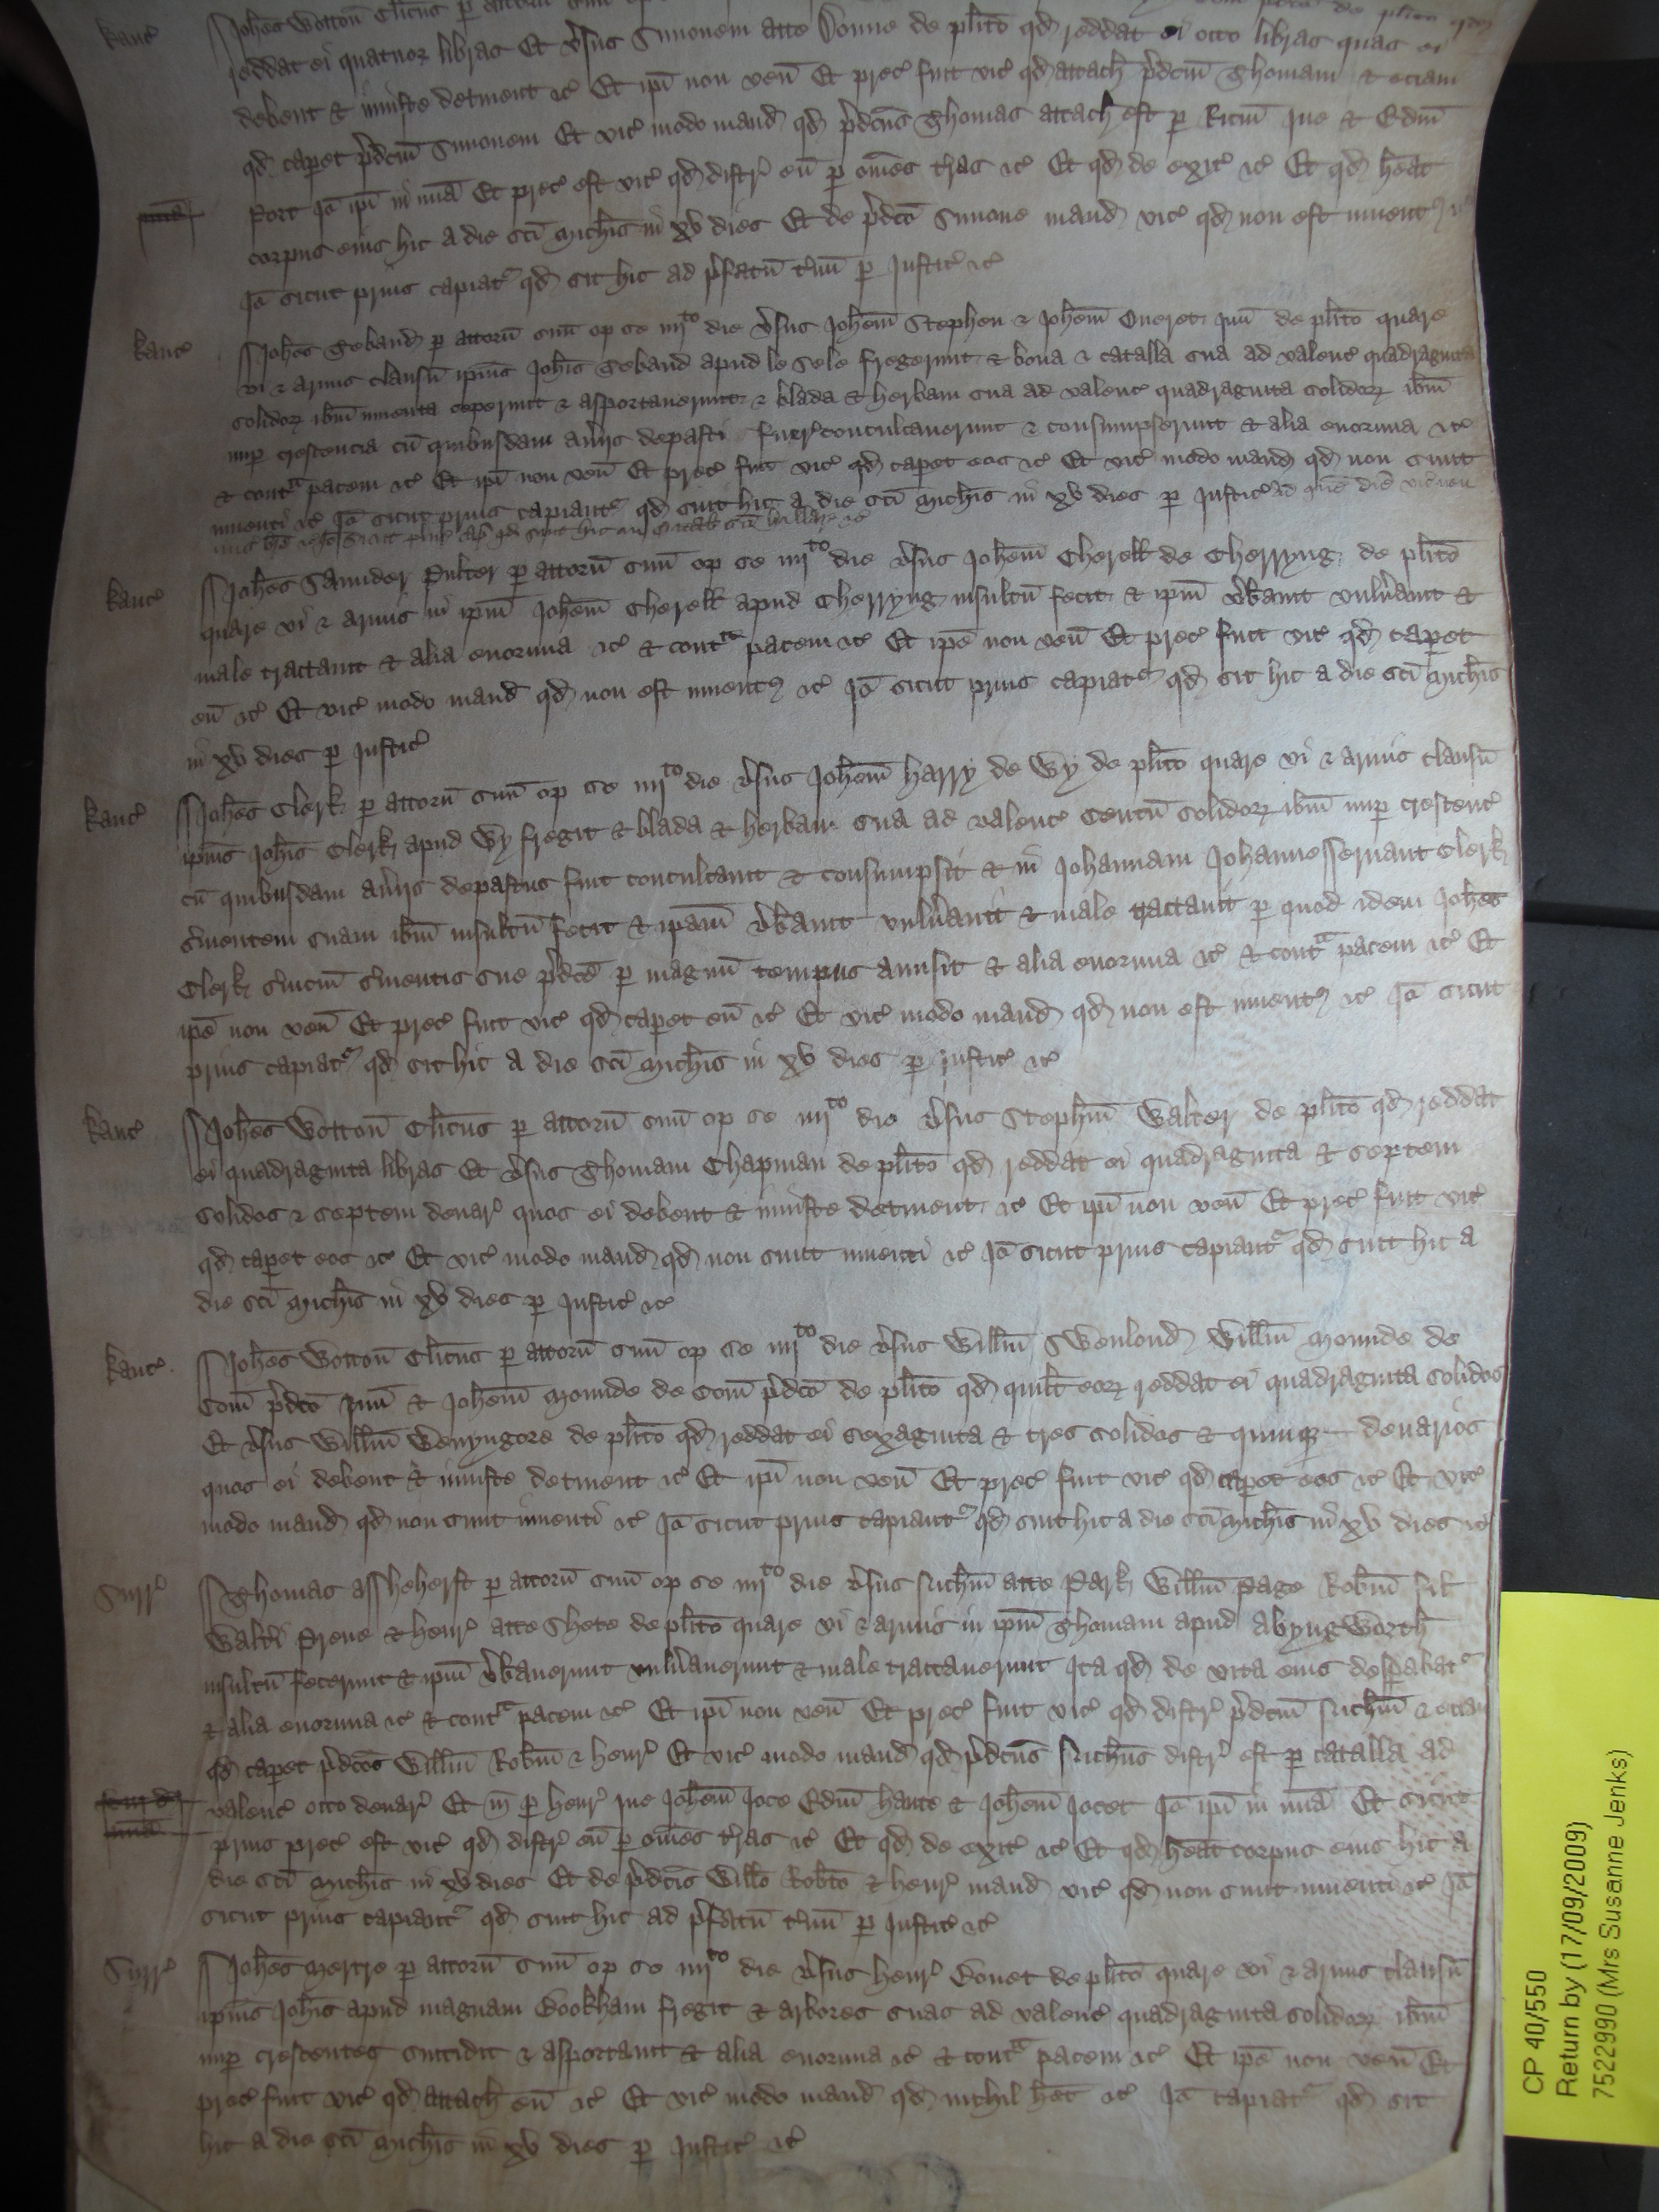 Kanc̄ Joh̄es Wotton Cl̄icus p̱ attorñ suū
reddat ei quatuor libras Et v̄sus Simonem atte Donne de pl̄ito qd̄ reddat ei octo libras quas ei
debent & iniuste detinent &c̄ Et ip̄i non ven̄ Et prec̄ fuit vic̄ qd̄ attach̄ p̄dcm̄ Thomam & eciam
qd̄ capet p̄dcm̄ Simonem Et vic̄ modo mand̄ qd̄ p̄dcūs Thomas attach̄ est p̱ Ricm̄ Jue & Edm̄
Port Jō ip̄i in mīa Et prec̄ est vic̄ qd̄ distr̄ eū p̱ om̄es t̄ras &c̄ Et qd̄ de exit̄ &c̄ Et qd̄ h̄eat
corpus eius hic a die sc̄i Mich̄is in xv dies Et de p̄dcō Simone mand̄ vic̄ qd̄ non est inuentꝰ &c̄
Jō sicut prius capiat̄ qd̄ sit hic ad p̄fatū t̄mū p̱ Justic̄ &c̄
Kanc̄ Joh̄es Seband̄ p̱ attorñ suū op se iiiito die v̄sus Joh̄em Stephen & Joh̄em Oueret Juñ de pl̄ito quare
vi & armis clausū ip̄ius Joh̄is Seband apud le Sele fregerunt & bona & catalla sua ad valenc̄ quadraginta
solidoꝝ ib̄m inuenta ceperunt & asportauerunt & blada & herbam sua ad valenc̄ quadraginta solidoꝝ ib̄m
nup̱ crescencia cū quibusdam aūiis depasti fuer̄ conculcauerunt & consumpserunt & alia enormia &c̄
& conta pacem &c̄ Et ip̄i non ven̄ Et prec̄ fuit vic̄ qd̄ capet eos &c̄ Et vic̄ modo mand̄ qd̄ non sunt
inuenti &c̄ Jō sicut prius capiant̄ qd̄ sint hic a die sc̄i Mich̄is in xv dies p̱ Justic̄ ad quē diē vic̄ non
mis̄ br̄e &c̄ Jō sicut prius cap̄ qd̄ sint hic in Octab̄ sc̄i Hillar̄ &c̄
Kanc̄ Joh̄es Saunder Pulter p̱ attorñ suū op se iiiito die v̄sus Joh̄em Cherell de Cherryng de pl̄ito
quare vi & armis in ip̄m Joh̄em Cherell apud Cherryng insultū fecit & ip̄m v̄bauit vuln̄auit &
male tractauit & alia enormia &c̄ & contra pacem &c̄ Et ip̄e non ven̄ Et prec̄ fuit vic̄ qd̄ capet
eū &c̄ Et vic̄ modo mand̄ qd̄ non est inuentꝰ &c̄ Jō sicut prius capiat̄ qd̄ sit hic a die sc̄i Mich̄is
in xv dies p̱ Justic̄
Kanc̄ Joh̄es Clerk p̱ attorñ suū op se iiiito die v̄sus Joh̄em Harry de Wy de pl̄ito quare vi & armis clausū
ip̄ius Joh̄is Clerk apud Wy fregit & blada & herbam sua ad valenc̄ Centū solidoꝝ ib̄m nup̱ crescenc̄
cū quibusdam aūiis depastus fuit conculcauit & consumpsit & in Johannam Johannesseruant Clerk
s̄uientem suam ib̄m insultū fecit & ip̄am v̄bauit vuln̄auit & male tractauit p̱ quod idem Joh̄es
Clerk s̄uiciū s̄uientis sue p̄dcē p̱ magnū tempus amisit & alia enormia &c̄ & conta pacem &c̄ Et
ip̄e non ven̄ Et prec̄ fuit vic̄ qd̄ capet eū &c̄ Et vic̄ modo mand̄ qd̄ non est inuentꝰ &c̄ Jō sicut
prius capiat̄ qd̄ sit hic a die sc̄i Mich̄is in xv dies p̱ Justic̄ &c̄
Kanc̄ Joh̄es Wotton Cl̄icus p̱ attorñ suū op se iiiito die v̄sus Steph̄m Walter de pl̄ito qd̄ reddat
ei quadraginta libras Et v̄sus Thomam Chapman de pl̄ito qd̄ reddat ei quadraginta & septem
solidos & septem denar̄ quos ei debent & iniuste detinent &c̄ Et ip̄i non ven̄ Et prec̄ fuit vic̄
qd̄ capet eos &c̄ Et vic̄ modo mand̄ qd̄ non sunt inuenti &c̄ Jō sicut prius capiant̄ qd̄ sint hic a
die sc̄i Mich̄is in xv dies p̱ Justic̄ &c̄
Kanc̄ Joh̄es Wotton Cl̄icus p̱ attorñ suū op se iiiito die v̄sus Will̄m Swenlond Will̄m Mounde de
Com̄ p̄dcō Juñ & Joh̄em Mounde de Com̄ p̄dcō de pl̄ito qd̄ quil̄t eoꝝ reddat ei quadraginta solidos
Et v̄sus Will̄m Wenyngore de pl̄ito qd̄ reddat ei sexaginta & tres solidos & quinqꝫ denarios
quos ei debent & iniuste detinent &c̄ Et ip̄i non ven̄ Et prec̄ fuit vic̄ qd̄ capet eos &c̄ Et vic̄
modo mand̄ qd̄ non sunt inuenti &c̄ Jō sicut prius capiant̄ qd̄ sint hic a die sc̄i Mich̄is in xv dies &c̄
Surr̄ Thomas Assheherst p̱ attorñ suū op se iiiito die v̄sus Nich̄m atte Park Will̄m Page Rob̄m fil̄
Walt̄i Preue & Henr̄ atte Shete de pl̄ito quare vi & armis in ip̄m Thomam apud Abyngworth
insultū fecerunt & ip̄m v̄bauerunt vuln̄auerunt & male tractauerunt Ita qd̄ de vita eius desp̱abat̄
& alia enormia &c̄ & conta pacem &c̄ Et ip̄i non ven̄ Et prec̄ fuit vic̄ qd̄ distr̄ p̄dcm̄ Nich̄m & eciam
qd̄ capet p̄dcōs Will̄m Rob̄m & Henr̄ Et vic̄ modo mand̄ qd̄ p̄dcūs Nich̄us distr̄ est p̱ catalla ad
valenc̄ octo denar̄ Et m̄ p̱ Henr̄ Jue Joh̄em Joce Edm̄ Hante & Joh̄em Jocet Jō ip̄i in mīa Et sicut
prius prec̄ est vic̄ qd̄ distr̄ eū p̱ om̄es t̄ras &c̄ Et qd̄ de exit̄ &c̄ Et qd̄ h̄eat corpus eius hic a
die sc̄i Mich̄is in xv dies Et de p̄dcīs Will̄o Rob̄to & Henr̄ mand̄ vic̄ qd̄ non sunt inuenti &c̄ Jō
sicut prius capiant̄ qd̄ sint hic ad p̄fatū t̄mū p̱ Justic̄ &c̄
Surr̄ Joh̄es Mertre p̱ attorñ suū op se iiiito die v̄sus Henr̄ Bouet de pl̄ito quare vi & armis clausū
ip̄ius Joh̄is apud magnam Bookham fregit & arbores suas ad valenc̄ quadraginta solidoꝝ ib̄m
nup̱ crescentes succidit & asportauit & alia enormia &c̄ & conta pacem &c̄ Et ip̄e non ven̄ Et
prec̄ fuit vic̄ qd̄ attach̄ eū &c̄ Et vic̄ modo mand̄ qd̄ nichil h̄et &c̄ Jō capiat̄ qd̄ sit
hic a die sc̄i Mich̄is in xv dies p̱ Justic̄ &c̄
CP 40/550
Return by (17/09/2009)
7522990 (Mrs Susanne Jenks)